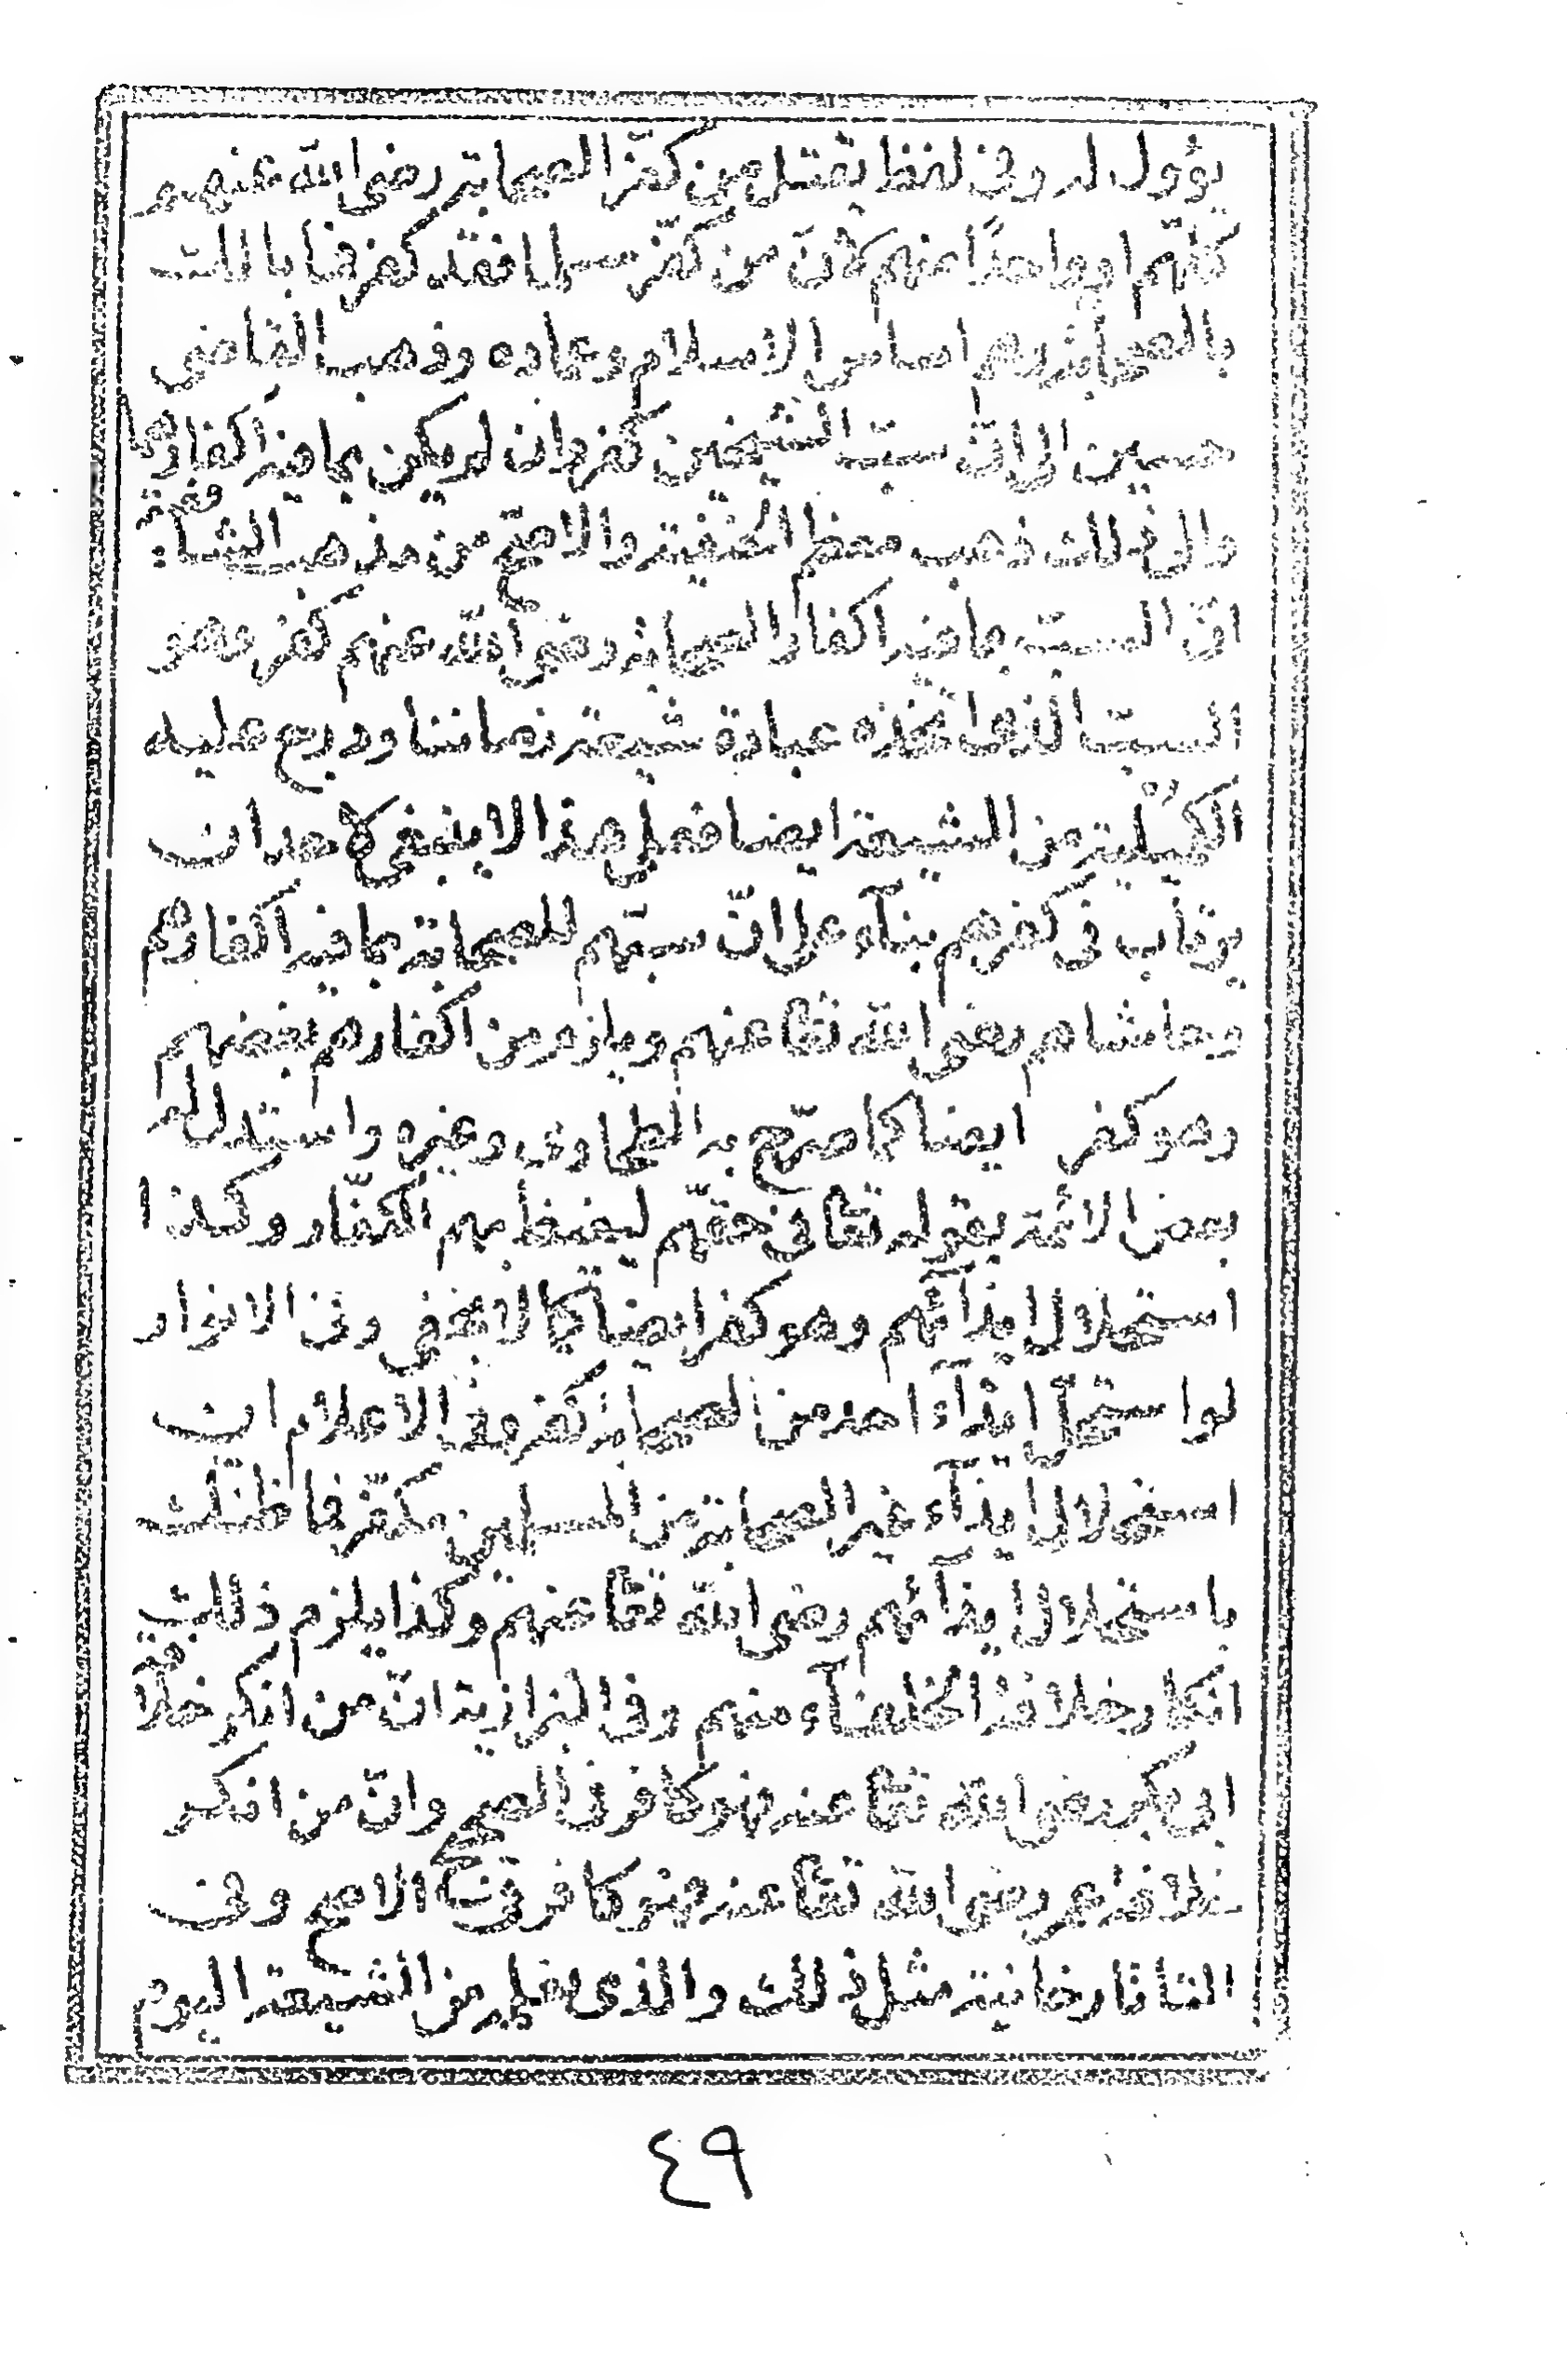 يؤول له وفى لفظ يقتل من كفّر الصحابة رضى الله عنهم
كلّهم او واحدًا منهم لانّ من كفّر مسلما فقد كفر فما بالك
بالصحابة وهم اساس الاسلام وعماده وذهب القاضى
حسين الى انّ سبّ الشيخين كفر وان لم يكن بما فيه اكفارهما
والى ذلك ذهب معظم الحنفية والاصح من مذهب الشافعية
انّ السبّ بما فيه اكفار الصحابة رضى الله عنهم كفر وهو
السبّ الذى اتّخذه عبادة شيعة زماننا ودرج عليه
الكميلية من الشيعة ايضا فعلى هذا لا ينبغى لاحد ان
يرتاب فى كفرهم بنآء على انّ سبّهم للصحابة بما فيه اكفارهم
وحاشاهم رضى الله تعا عنهم ويلزم من اكفارهم بغضهم
وهو كفر ايضا كما صرّح به الطحاوى وغيره واستدل له
بعض الائمة بقوله تعا فى حقّهم ليغيظ بهم الكفّار وكذا
استحلال ايذآئهم وهو كفر ايضا كما لا يخفى وفى الانوار
لو استحلّ ايذآء احد من الصحابة كفر وفى الاعلام ان
استحلال ايذآء غير الصحابة من المسلمين مكفّر فما ظنّك
باستحلال ايذآئهم رضى الله تعا عنهم وكذا يلزم ذلك
انكار خلافة الخلفآء منهم وفى البزازية انّ من انكر خلافة
ابى بكر رضى الله تعا عنه فهو كافر فى الصحيح وانّ من انكر
خلافة عمر رضى الله تعا عنه فهو كافر فى الاصح وفى
التاتارخانية مثل ذلك والذى يظهر من الشيعة اليوم
٤٩